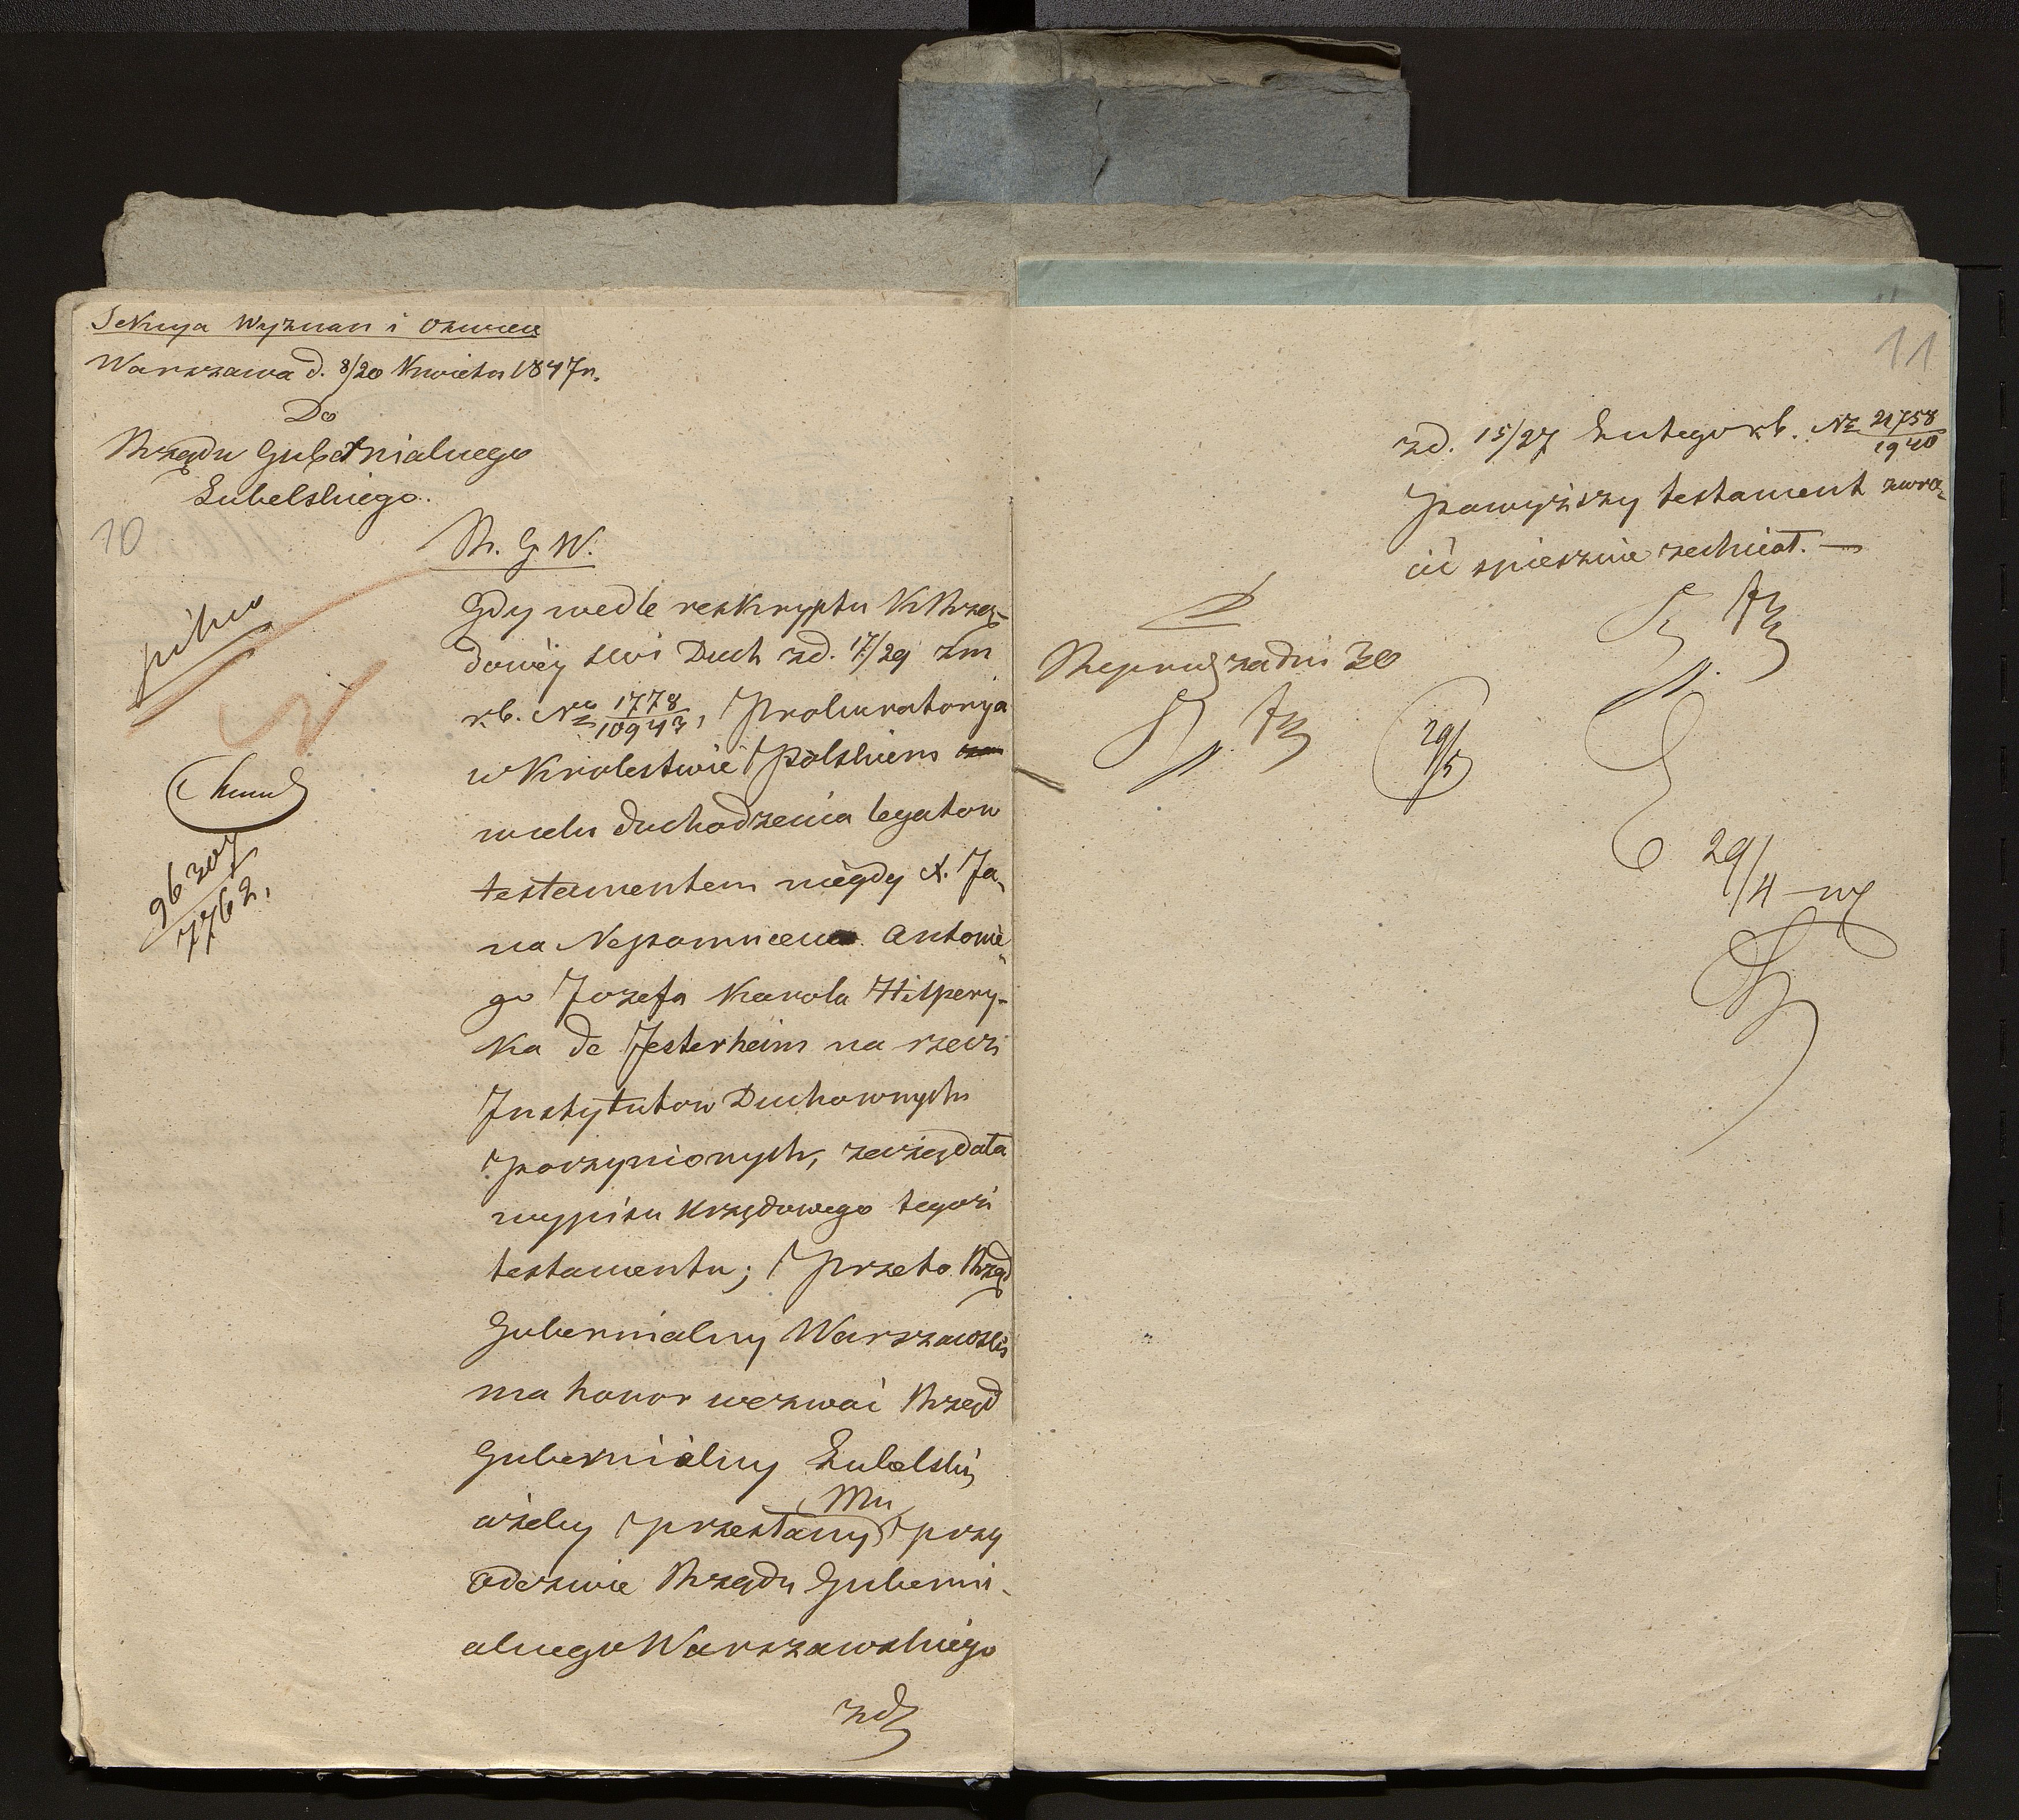 Sekcya Wyznań i Oswiec
Warszawa d. 8/20 Kwietn 1847 r.
Do
Rządu Gubernialnego
Lubelskiego.
10
R. G. W.
pilno
96207
7762.
Gdy wedle reskryptu K Rzą-
dowéy SWi Duch zd. 17/29 zm
rb. No 1778/10943, Prokuratorya
w Krolestwie Polskiem
w celu dochodzenia legatow
testamentem niegdy X. Ja-
na Nepomucena Antonie-
go Jozefa Karola Hilpery-
ka de Jesterheim na rzecz
Instytutow Duchownych
poczynionych, zarządała
wypisu Urzędowego tegoż
testamentu; przeto Rząd
Gubernialny Warszawski
ma honor wezwać Rząd
Gubernialny Lubelski,
Mu
ażeby przesłany przy
Odezwie Rządu Guberni-
alnego Warszawskiego
zd
11
zd. 15/27 Lutego rb. No 21758/1940
powyższy testament zwró-
cić spiesznie zechciał. —
Repred za dni 30
29/5
29/4